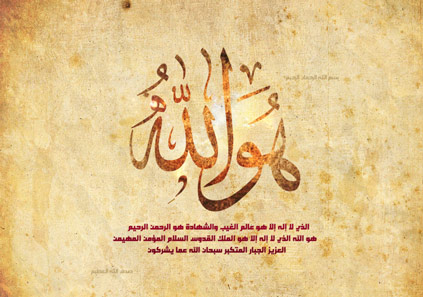 بسم الله الرحمن الرحيم
هُوَ اللّٰهُ
الذي لا إله إلا هو عالم الغيب والشهادة هو الرحمن الرحيم
هو الله الذي لا إله إلا هو الملك القدوس السلام المؤمن المهيمن
العزيز الجبار المتكبر سبحان الله عما يشركون